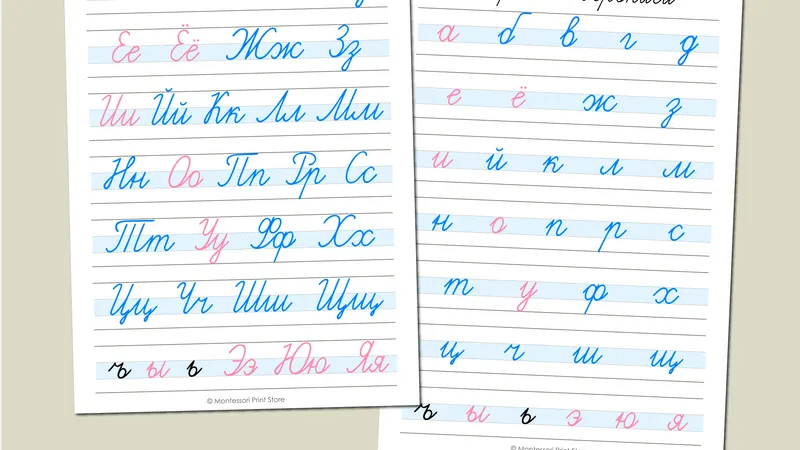 Ее Ёё Жж Зз
Ии Йй Кк Лл Мм
Нн Оо Пп Рр Сс
Тт Уу Фф Хх
Цц Чч Шш Щщ
ъ ы ь Ээ Юю Яя
© Montessori Print Store
а б в г д
е ё ж з
и й к л м
н о п р с
т у ф х
ц ч ш щ
ъ ы ь э ю я
© Montessori Print Store